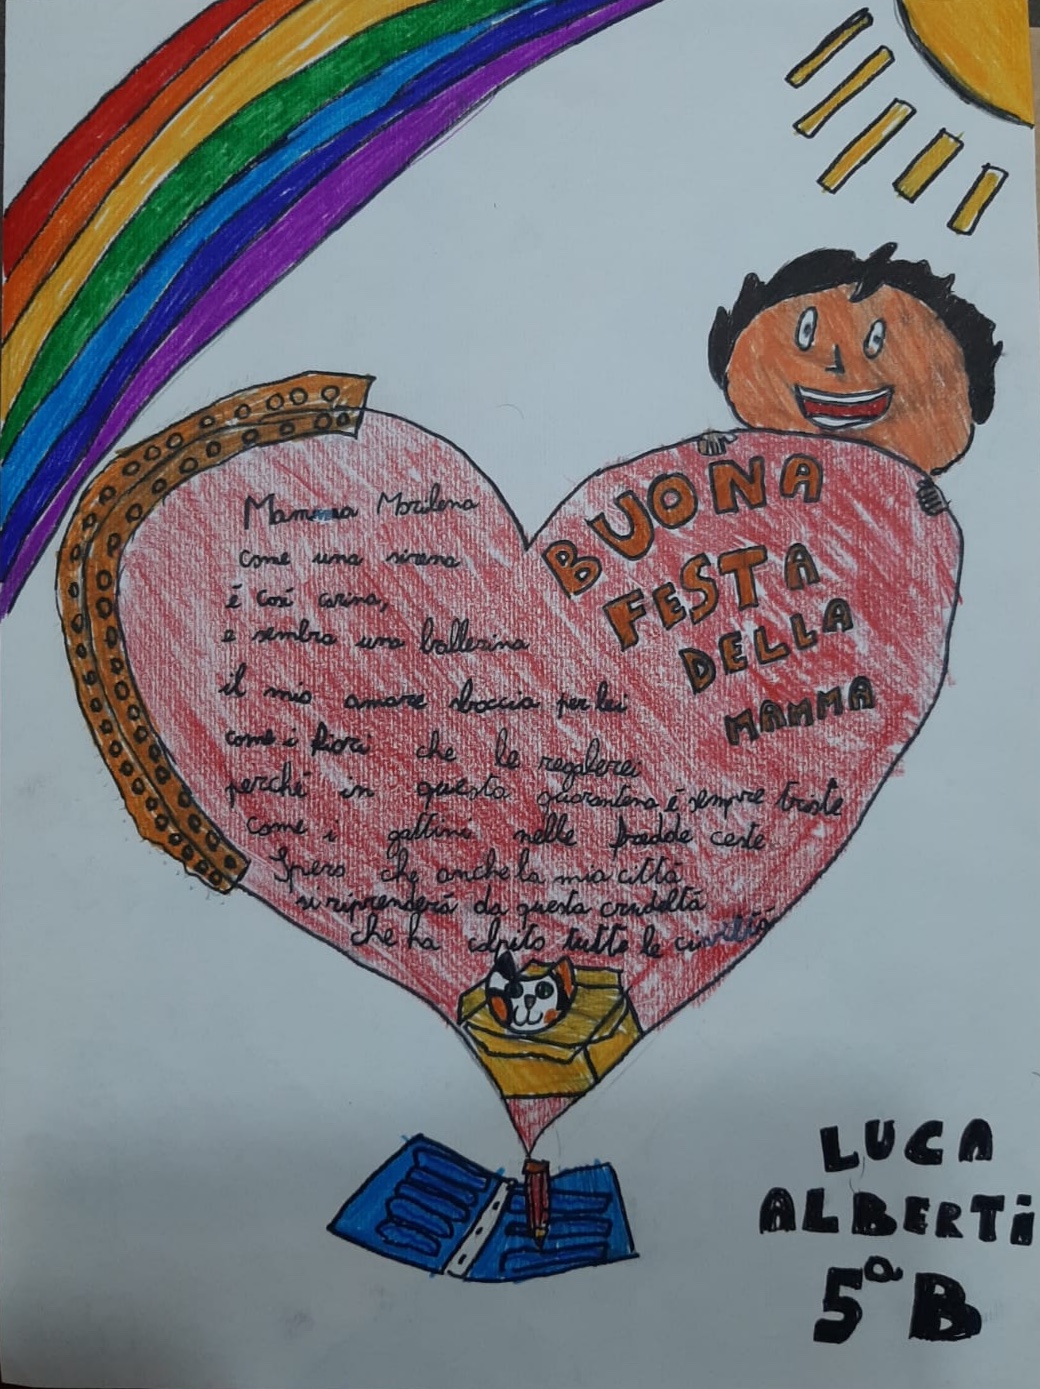 Mamma Marilena
come una sirena
é così carina,
e sembra una ballerina
il mio amore sboccia per lei
come i fiori che le regalerei
perché in questa quarantena é sempre triste
come i gattini nelle fradde ceste
Spero che anche la mia città
si riprenderá da questa crudeltá
che ha colpito tutte le civiltá
BUONA
FESTA
DELLA
MAMMA
LUCA
ALBERTi
5ª B